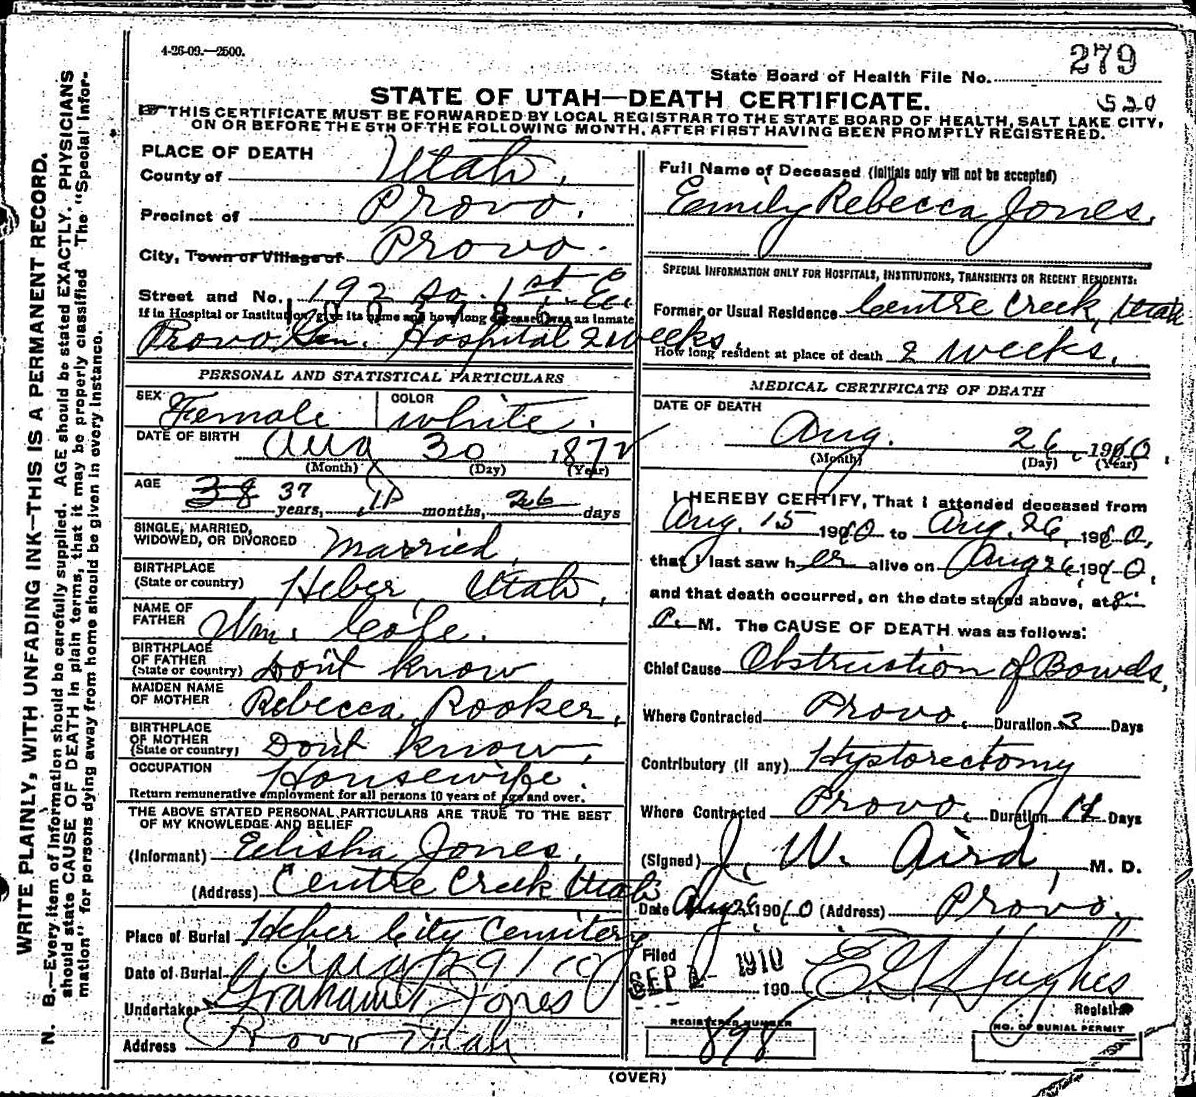 4-26-09.—2500.
279
State Board of Health File No.
STATE OF UTAH—DEATH CERTIFICATE.
520
☞ THIS CERTIFICATE MUST BE FORWARDED BY LOCAL REGISTRAR TO THE STATE BOARD OF HEALTH, SALT LAKE CITY,
ON OR BEFORE THE 5TH OF THE FOLLOWING MONTH, AFTER FIRST HAVING BEEN PROMPTLY REGISTERED.
WRITE PLAINLY, WITH UNFADING INK—THIS IS A PERMANENT RECORD.
N. B.—Every item of information should be carefully supplied. AGE should be stated EXACTLY. PHYSICIANS
should state CAUSE OF DEATH in plain terms, that it may be properly classified. The "Special Infor-
mation" for persons dying away from home should be given in every instance.
PLACE OF DEATH
County of Utah.
Precinct of Provo.
City, Town or Village of Provo.
Street and No. 192 So. 1st E
If in Hospital or Institution, give its name and how long deceased was an inmate
Provo Gen. Hospital 2 weeks.
PERSONAL AND STATISTICAL PARTICULARS
SEX Female COLOR white.
DATE OF BIRTH Aug 30 1872
(Month) (Day) (Year)
AGE 38 37 years, 11 months, 26 days
SINGLE, MARRIED,
WIDOWED, OR DIVORCED Married
BIRTHPLACE
(State or country) Heber, Utah.
NAME OF
FATHER Wm. Cole.
BIRTHPLACE
OF FATHER
(State or country) Don't know
MAIDEN NAME
OF MOTHER Rebecca Rooker,
BIRTHPLACE
OF MOTHER
(State or country) Don't know,
OCCUPATION Housewife.
Return remunerative employment for all persons 10 years of age and over.
THE ABOVE STATED PERSONAL PARTICULARS ARE TRUE TO THE BEST
OF MY KNOWLEDGE AND BELIEF
(Informant) Elisha Jones,
(Address) Centre Creek Utah
Place of Burial Heber City Cemitery
Date of Burial Aug 29 1910
Undertaker Graham & Jones
Address Provo Utah
Full Name of Deceased (Initials only will not be accepted)
Emily Rebecca Jones.
SPECIAL INFORMATION ONLY FOR HOSPITALS, INSTITUTIONS, TRANSIENTS OR RECENT RESIDENTS:
Former or Usual Residence Centre Creek, Utah
How long resident at place of death 2 weeks.
MEDICAL CERTIFICATE OF DEATH
DATE OF DEATH
Aug. 26, 1910.
(Month) (Day) (Year)
I HEREBY CERTIFY, That I attended deceased from
Aug. 15 1910 to Aug. 26, 1910,
that I last saw her alive on Aug 26 1910,
and that death occurred, on the date stated above, at 8:
P. M. The CAUSE OF DEATH was as follows:
Chief Cause Obstruction of Bowels,
Where Contracted Provo. Duration 3 Days
Contributory (if any) Hystorectomy
Where Contracted Provo. Duration 12 Days
(Signed) J. W. Aird, M. D.
Date Aug 26 1910 (Address) Provo.
Filed
SEP 1 1910 190 E G Hughes
Registrar
REGISTERED NUMBER
898
NO. OF BURIAL PERMIT
(OVER)